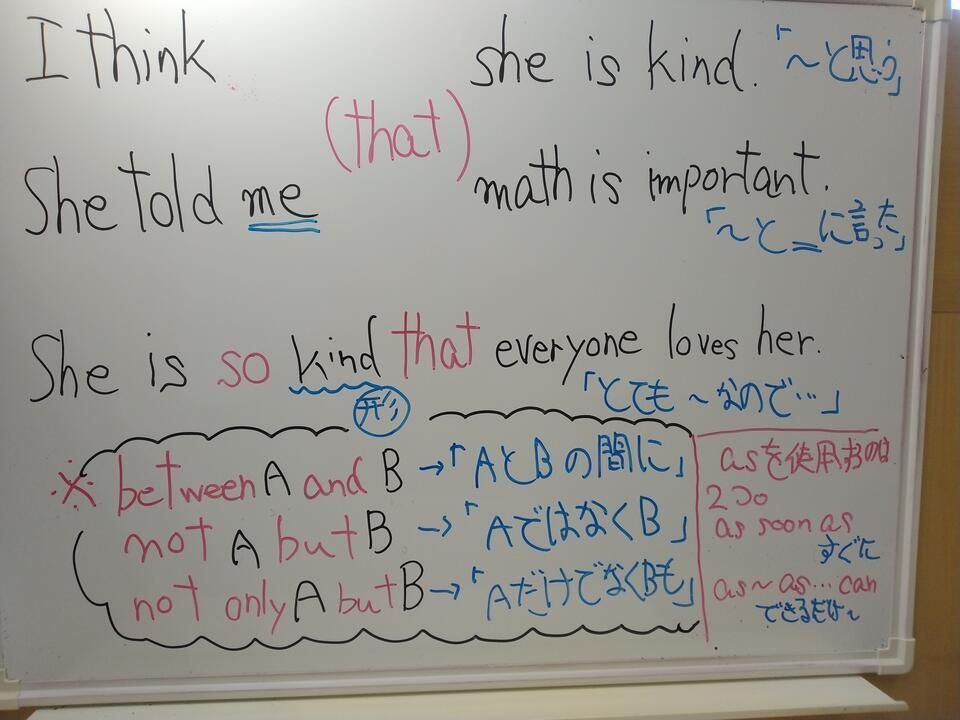 I think (that) she is kind. 「～と思う」
She told me math is important.
「～と＿に言った」
She is so kind that everyone loves her.
形 「とても～なので…」
※ between A and B →「AとBの間に」
not A but B →「AではなくB」
not only A but B →「AだけでなくBも」
asを使用するのは
2つ。
as soon as
すぐに
as～as…can
できるだけ～